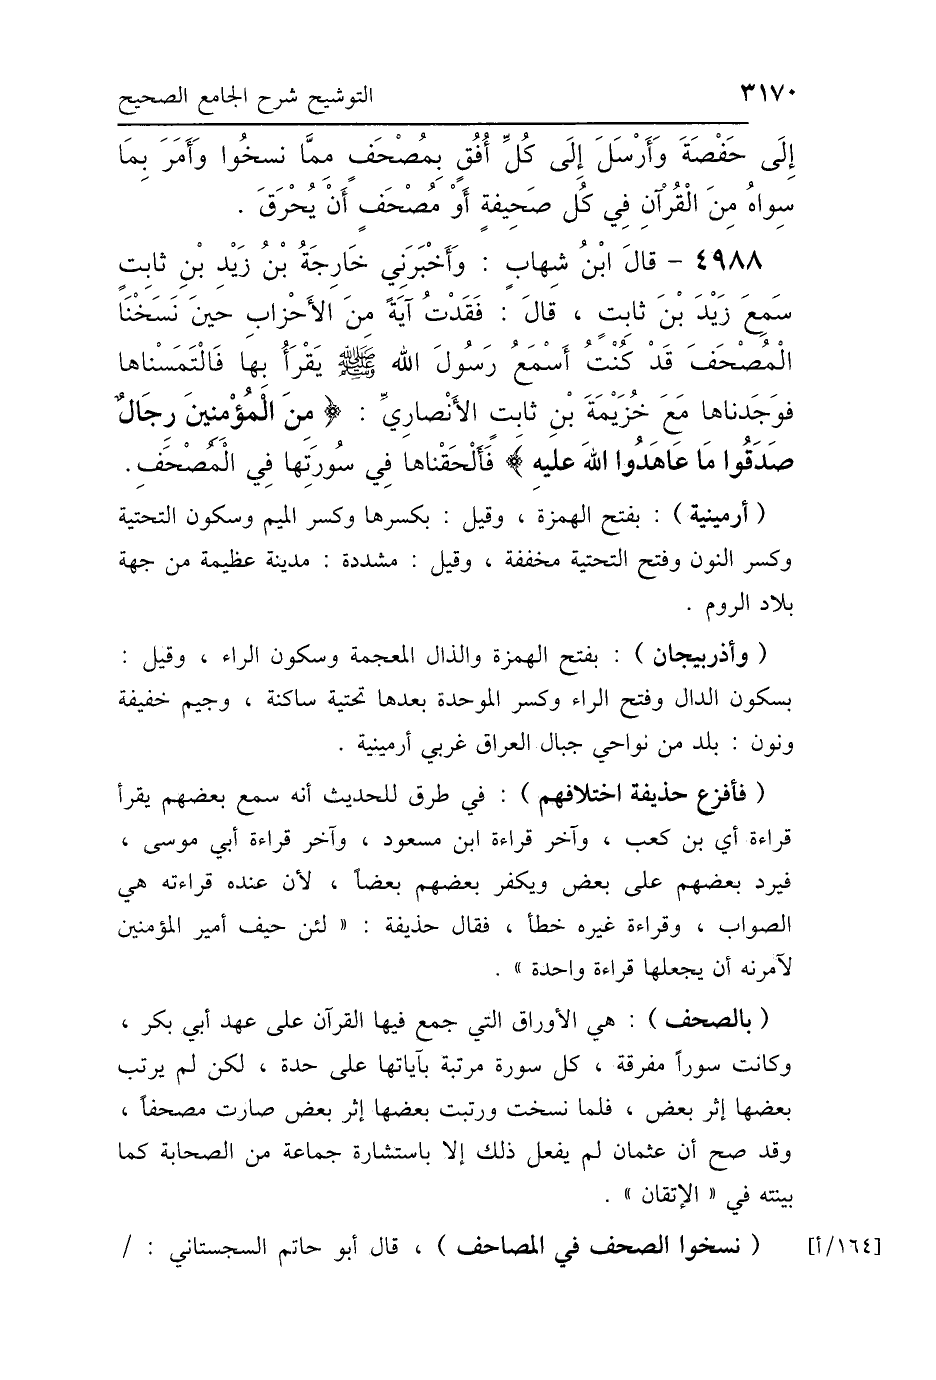 ٣١٧٠ التوشيح شرح الجامع الصحيح
إِلَى حَفْصَةَ وَأَرْسَلَ إِلَى كُلِّ أُفُقٍ بِمُصْحَفٍ مِمَّا نسخُوا وَأَمَرَ بِمَا
سواهُ مِنَ الْقُرْآنِ فِي كُل صَحيفةٍ أَوْ مُصْحَفٍ أَنْ يُحْرَقَ .
٤٩٨٨ - قالَ ابْنُ شهابٍ : وَأَخْبَرَنِي خَارِجَةُ بْنُ زَيْدِ بْنِ ثابتٍ
سَمِعَ زَيْدَ بْنَ ثابِتٍ ، قالَ : فَقَدْتُ آيَةً مِنَ الأَحْزابِ حينَ نَسَخْنَا
الْمُصْحَفَ قَدْ كُنْتُ أَسْمَعُ رَسُولَ الله ﷺ يَقْرَأُ بِها فَالْتَمَسْناها
فوَجَدناها مَعَ خُزَيْمَةَ بْنِ ثابتٍ الأَنْصاريِّ : ﴿ منَ الْمُؤْمنينَ رِجَالٌ
صَدَقُوا مَا عَاهَدُوا اللهَ عليه ﴾ فَأَلْحَقْناها فِي سُورَتِها فِي الْمُصْحَفِ .
( أرمينية ) : بفتح الهمزة ، وقيل : بكسرها وكسر الميم وسكون التحتية
وكسر النون وفتح التحتية مخففة ، وقيل : مشددة : مدينة عظيمة من جهة
بلاد الروم .
( وأذربيجان ) : بفتح الهمزة والذال المعجمة وسكون الراء ، وقيل :
بسكون الدال وفتح الراء وكسر الموحدة بعدها تحتية ساكنة ، وجيم خفيفة
ونون : بلد من نواحي جبال العراق غربي أرمينية .
( فأفزع حذيفة اختلافهم ) : في طرق للحديث أنه سمع بعضهم يقرأ
قراءة أي بن كعب ، وآخر قراءة ابن مسعود ، وآخر قراءة أبي موسى ،
فيرد بعضهم على بعض ويكفر بعضهم بعضاً ، لأن عنده قراءته هي
الصواب ، وقراءة غيره خطأ ، فقال حذيفة : « لئن حيف أمير المؤمنين
لآمرنه أن يجعلها قراءة واحدة » .
( بالصحف ) : هي الأوراق التي جمع فيها القرآن على عهد أبي بكر ،
وكانت سوراً مفرقة ، كل سورة مرتبة بآياتها على حدة ، لكن لم يرتب
بعضها إثر بعض ، فلما نسخت ورتبت بعضها إثر بعض صارت مصحفاً ،
وقد صح أن عثمان لم يفعل ذلك إلا باستشارة جماعة من الصحابة كما
بينته في « الإتقان » .
[١٦٤/أ] ( نسخوا الصحف في المصاحف ) ، قال أبو حاتم السجستاني : /